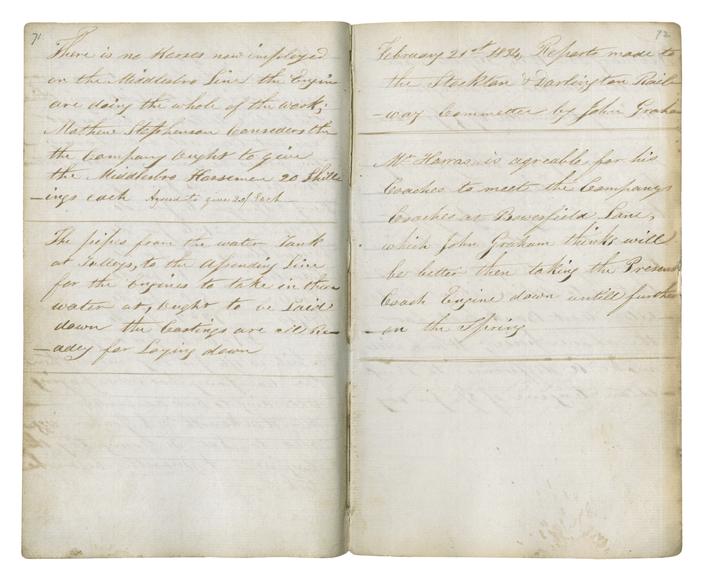 71
There is no Horses now imployed
on the Middlesbro Line the Engins
are doing the whole of the work;
Mathew Stephenson Considers the
the Company Ought to give
the Middlesbro Horsemen 20 Shill
-ings each Agreed to give 20/ Each
The pipes from the water Tank
at to the Assending Line
for the Engines to take in their
water at, Ought to be Laid
down the Castings are all Re-
-adey for Laying down
72
February 21st 1834, Reports made to
the Stockton & Darlington Rail
-way Committee by John Graham
Mr Harras is agreable for his
Coaches to meet the Companys
Coaches at Lane,
which John Graham thinks will
be better then taking the Present
Coach Engine down untill further
-on the Spring